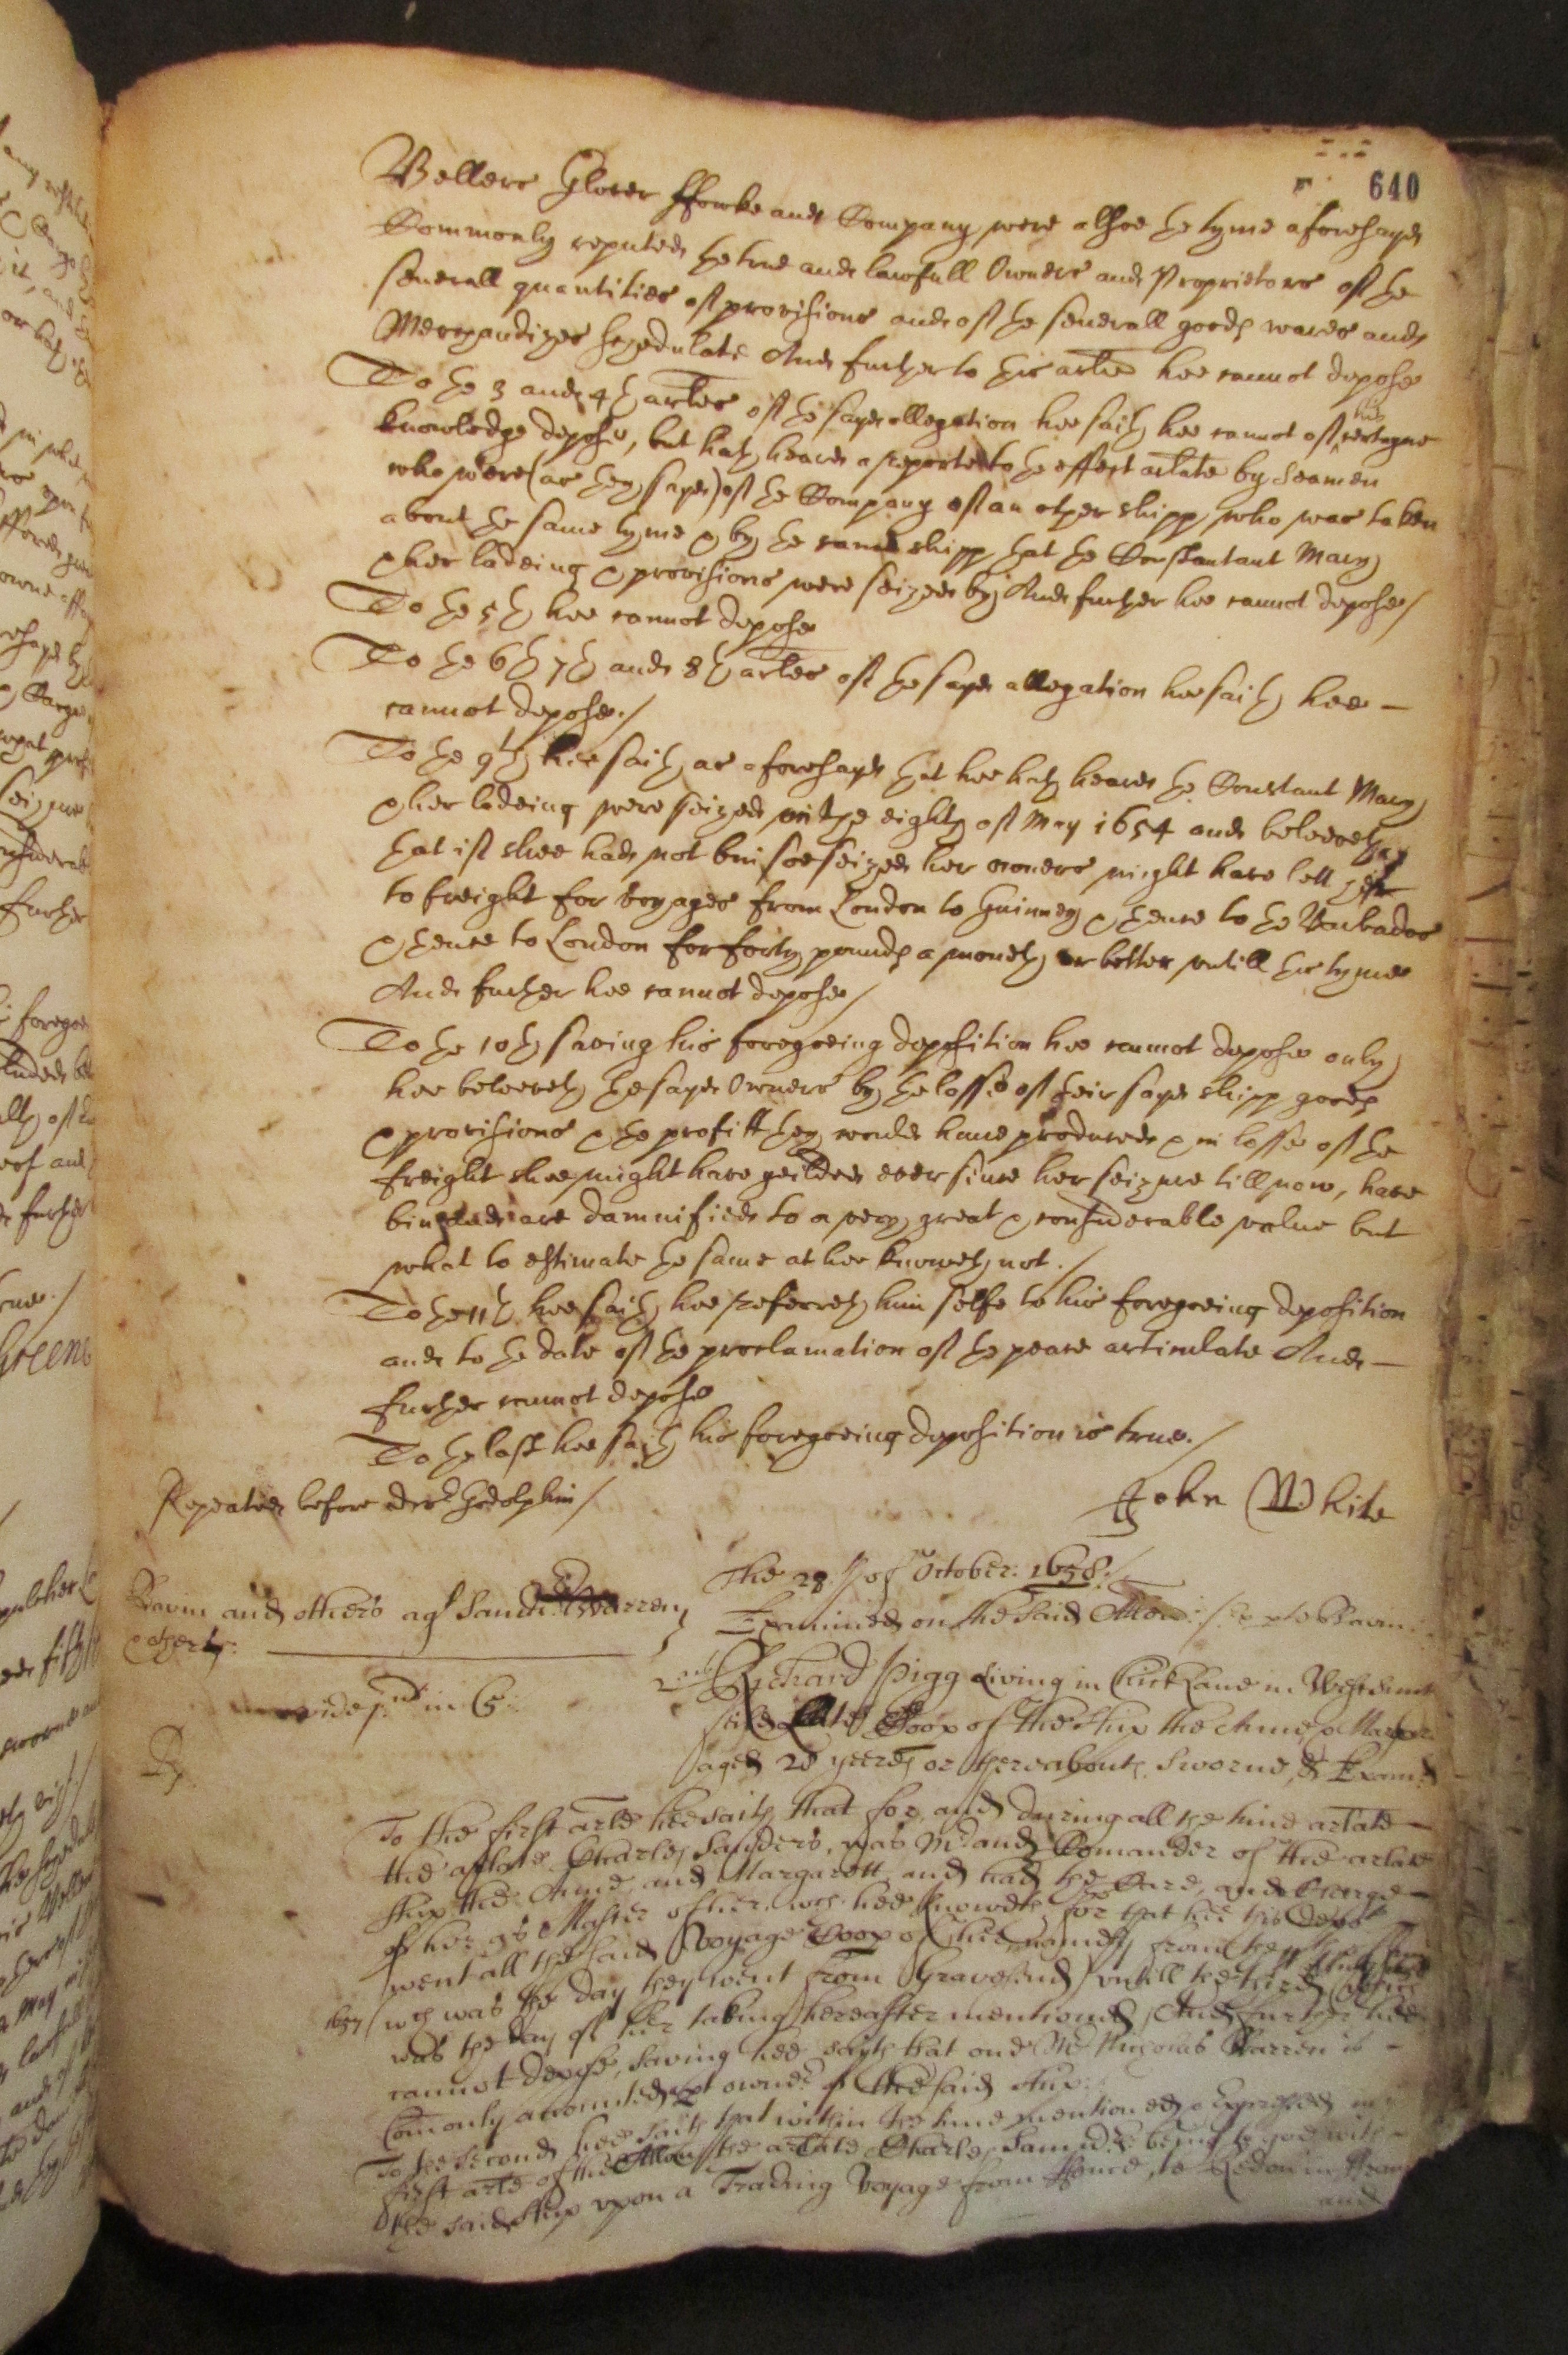 640
Vellers Glover ffowke and Company were alsoe the tyme aforesayd
Commonly reputed the true and lawfull Owners and Proprietors of the
severall quantities of provisions and of the severall goods wares and
Merchandizes schedulate And further to this arlē hee cannot depose
To the 3 and 4th arles of the sayd allegation hee saith hee cannot of his certayne
knowledge depose, but hath heard a reporte to the effect arlate by Seamen
who were (as they sayd) of the Company of an other shipp, who was taken
about the same tyme & by the same shipp that the Constantant Mary
& her ladeing & provisions were seized by And further hee cannot depose/
To the 5th hee cannot depose
To the 6th 7th and 8th arles of the sayd allegation hee saith hee –
cannot depose./
To the 9th hee saith as aforesayd that hee hath heard the Constant Mary
& her ladeing were seized on the eighth of May 1654 and beleeveth
that if shee had not bin soe seized her owners might have lett her
to freight for voyages from London to Guinney & thence to the Barbados
& thence to London for forty pounds a moneth or better untill this tyme
And further hee cannot depose/
To the 10th saving his foregoeing deposition hee cannot depose only
hee beleeveth the sayd Owners by the losse of their sayd shipp goods
& provisions & the profitt they would have produced & in losse of the
freight shee might have yeilded ever since her seizure till now, have
bin and are damnified to a very great & considerable value but
what to estimate the same at hee knoweth not./
To the 11th hee saith hee referreth him selfe to his foregoeing deposition
and to the date of the proclamation of the peace articulate And –
further cannot depose
To the last hee saith his foregoeing deposition is true./
Repeated before doctr Godolphin/
John White
The 28th of October: 1658./
and others agt Saunders Warren
& others.
Examined on the said Allōn:
vide in B:
2nd
Richard Pigg Living in in
Late Coox of the Ship the Anne & Margaret
aged 28 yeeres or thereabouts Sworne, & Examd
To the first arlē hee saith that for, and during all the time arlate –
the arlate Charles Sanders, was Mr and Comander of the arlate
Ship the Anne, and Margarett and had the Care, and Charge –
of her as Master of her, wch hee knoweth for that hee this depot
went all the said Voyage Coox of her namely from the
wch was the day they went from Gravesend untill the third
1657
was the day of her taking hereafter mentioned, And further hee
cannot depose, saving hee saith that one Mr Nicholas Warren is –
Comonly accounted pt owner of the said Ship
To the second hee saith that within the time mentioned & Expressed in
first arlē of the Allōn the arlate Charles Saunders being to goe with –
the said Ship upon a Trading Voyage from hence, to Redon in
and